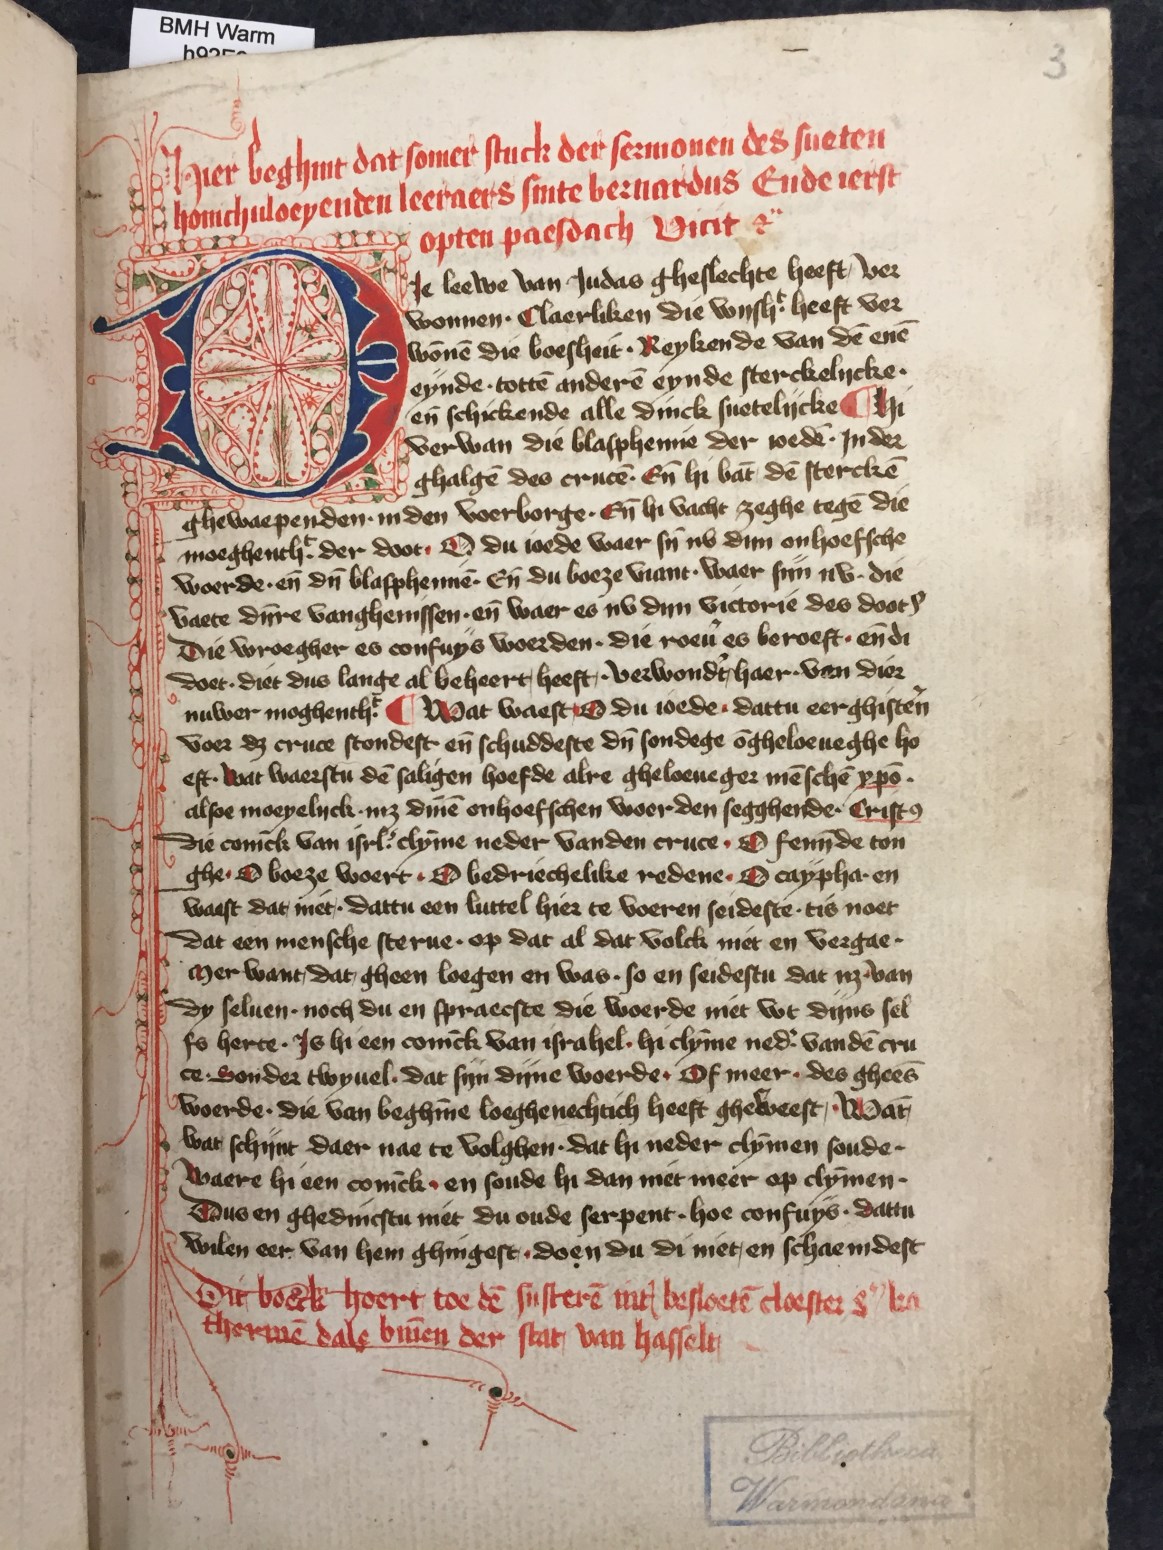 BMH Warm
3
Hier beghint dat somer stuck der sermonen des sueten
honichuloeyenden leeraers sinte bernardus Ende ierst
opten paesdach Vicit
Die leewe van Judas gheslechte heeft ver
wonnen. Claerliken die wijsh᷑t heeft ver
wōnē die boesheit. Reykende van dē enē
eynde. tottē anderē eynde sterckelijcke.
en̄ schickende alle dinck suetelijcke ¶ Hi
verwan die blasphemie der ioedē. In der
ghalgē des crucē. En̄ hi bāt dē sterckē
ghewaependen. in den voerborge. En̄ hi vacht zeghe tegē die
moeghenth᷑t der doot. O du ioede waer sȳ nv dijn onhoefsche
woerde. en̄ dȳ blasphemiē. En̄ du boeze viant. waer sijn nv. die
vaete dijnre vanghenissen. en̄ waer es nv dijn victorie des doots
Die wroegher es confuys woerden. die roeu̓ es beroeft. en̄ di
doet. diet dus lange al beheert heeft. verwondt̓ haer. van dier
nuwer moghenth᷑t ¶ Wat waest O du ioede. dattu eerghistern̓
voer dz cruce stondest en̄ schuddeste dȳ sondege ōgheloeueghe ho
eft. Wat waerstu dē saligen hoefde alre gheloeueger mēschē xpō.
alsoe moeyelijck. mz dinē onhoefschen woerden segghende. Cristꝰ
die conīck van isrl̓. clȳme neder vanden cruce. O fenīnde ton
ghe. O boeze woert. O bedriechelike redene. O caypha. en
waest dat niet. dattu een luttel hier te voeren seideste. tis noet
dat een mensche sterue. op dat al dat volck niet en vergae.
Mer want dat gheen loegen en was. so en seidestu dat nz. van
dy seluen. noch du en spraecste die woerde niet wt dijns sel
fs herte. Is hi een conīck van israhel. hi clȳme ned̓. vandē cru
ce. Sonder twyuel. dat sijn dijne woerde. Of meer. des gheēs
woerde. die van beghīne loeghenechtich heeft gheweest. Wāt
wat schijnt daer nae te volghen. dat hi neder clȳmen soude.
Waere hi een conīck. en soude hi dan niet meer op clȳmen.
Dus en ghedincstu niet du oude serpent. hoe confuys. dattu
wilen eer van hem ghingest. doen du di niet en schaemdest
Dit boeck hoert toe dē susterē int besloetē cloester sᵗᵉ ka
therinē dale binēn der stat van hasselt
Bibliotheca
Warmondana